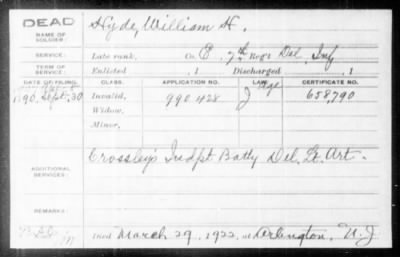 DEAD
NAME OF SOLDIER: Hyde, William H.
SERVICE: Late rank, Co. E, 7th Reg't Del. Inf
TERM OF SERVICE: Enlisted , 1 Discharged , 1
DATE OF FILING. CLASS. APPLICATION NO. LAW. CERTIFICATE NO.
1890, Sept. 30 Invalid, 990428 J 658,790
Widow,
Minor,
ADDITIONAL SERVICES: Crossley's Indpt Batty Del. Lt. Art.
REMARKS:
Died March 29, 1922, at Arlington, N.J.